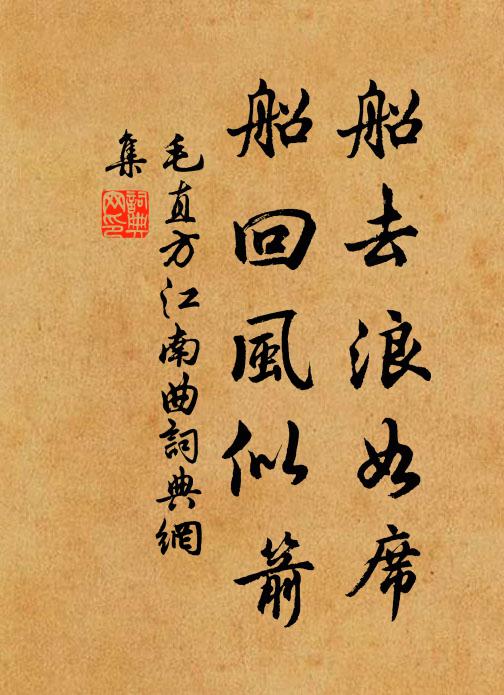 船去浪如席
船回風似箭
毛直方江南曲詞典網
集
詞典
网印